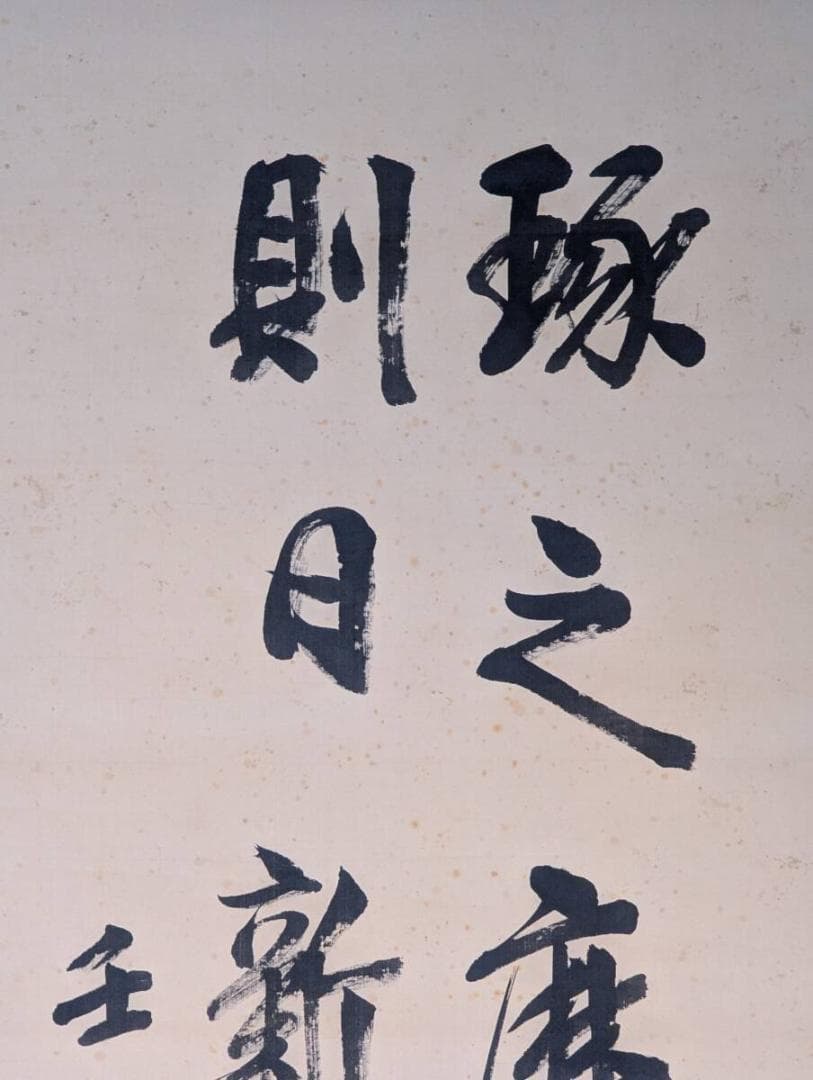 琢之
則日新
壬